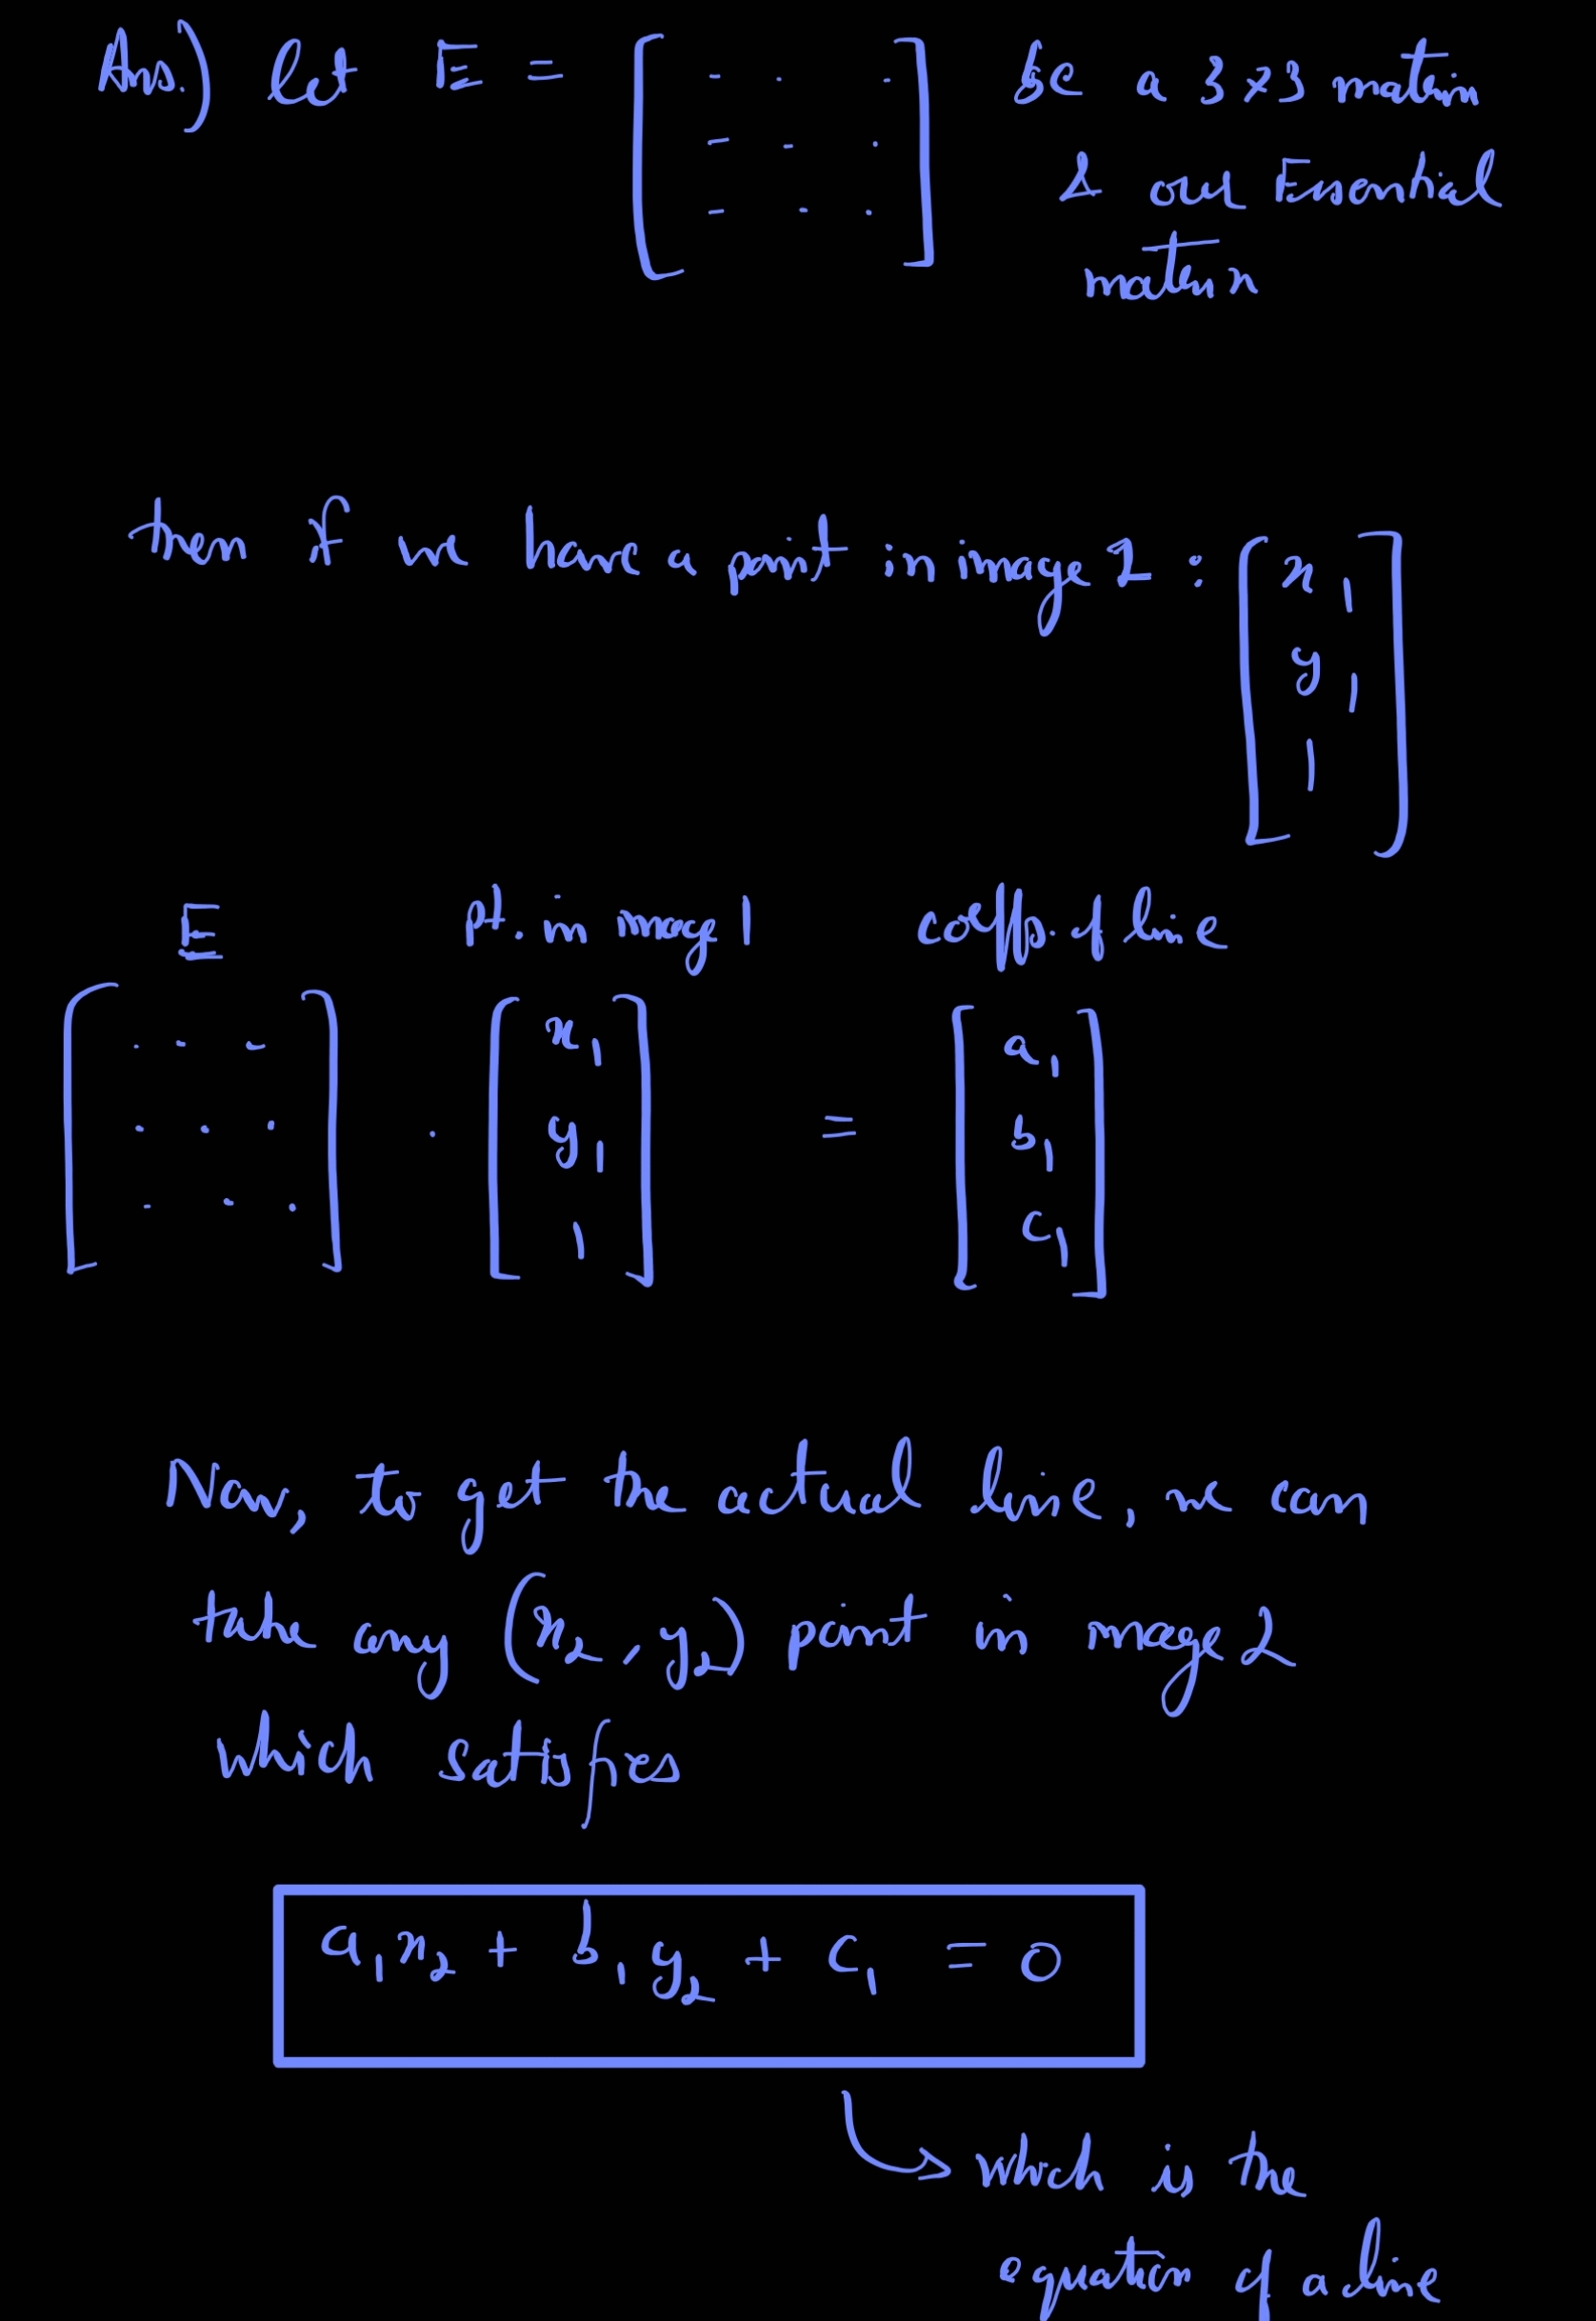 Ans.) let E = [ - . - - - . - - . ] be a 3x3 matrix
& our Essential
matrix
then if we have a point in image 1 : [ x₁
y₁
1 ]
E pt. in image 1 coeffs. of line
[ . . - . . . . . . ] . [ x₁ y₁ 1 ] = [ a₁ b₁ c₁ ]
Now, to get the actual line, we can
take any (x₂, y₂) point in image 2
which satisfies
a₁x₂ + b₁y₂ + c₁ = 0
↳ which is the
equation of a line